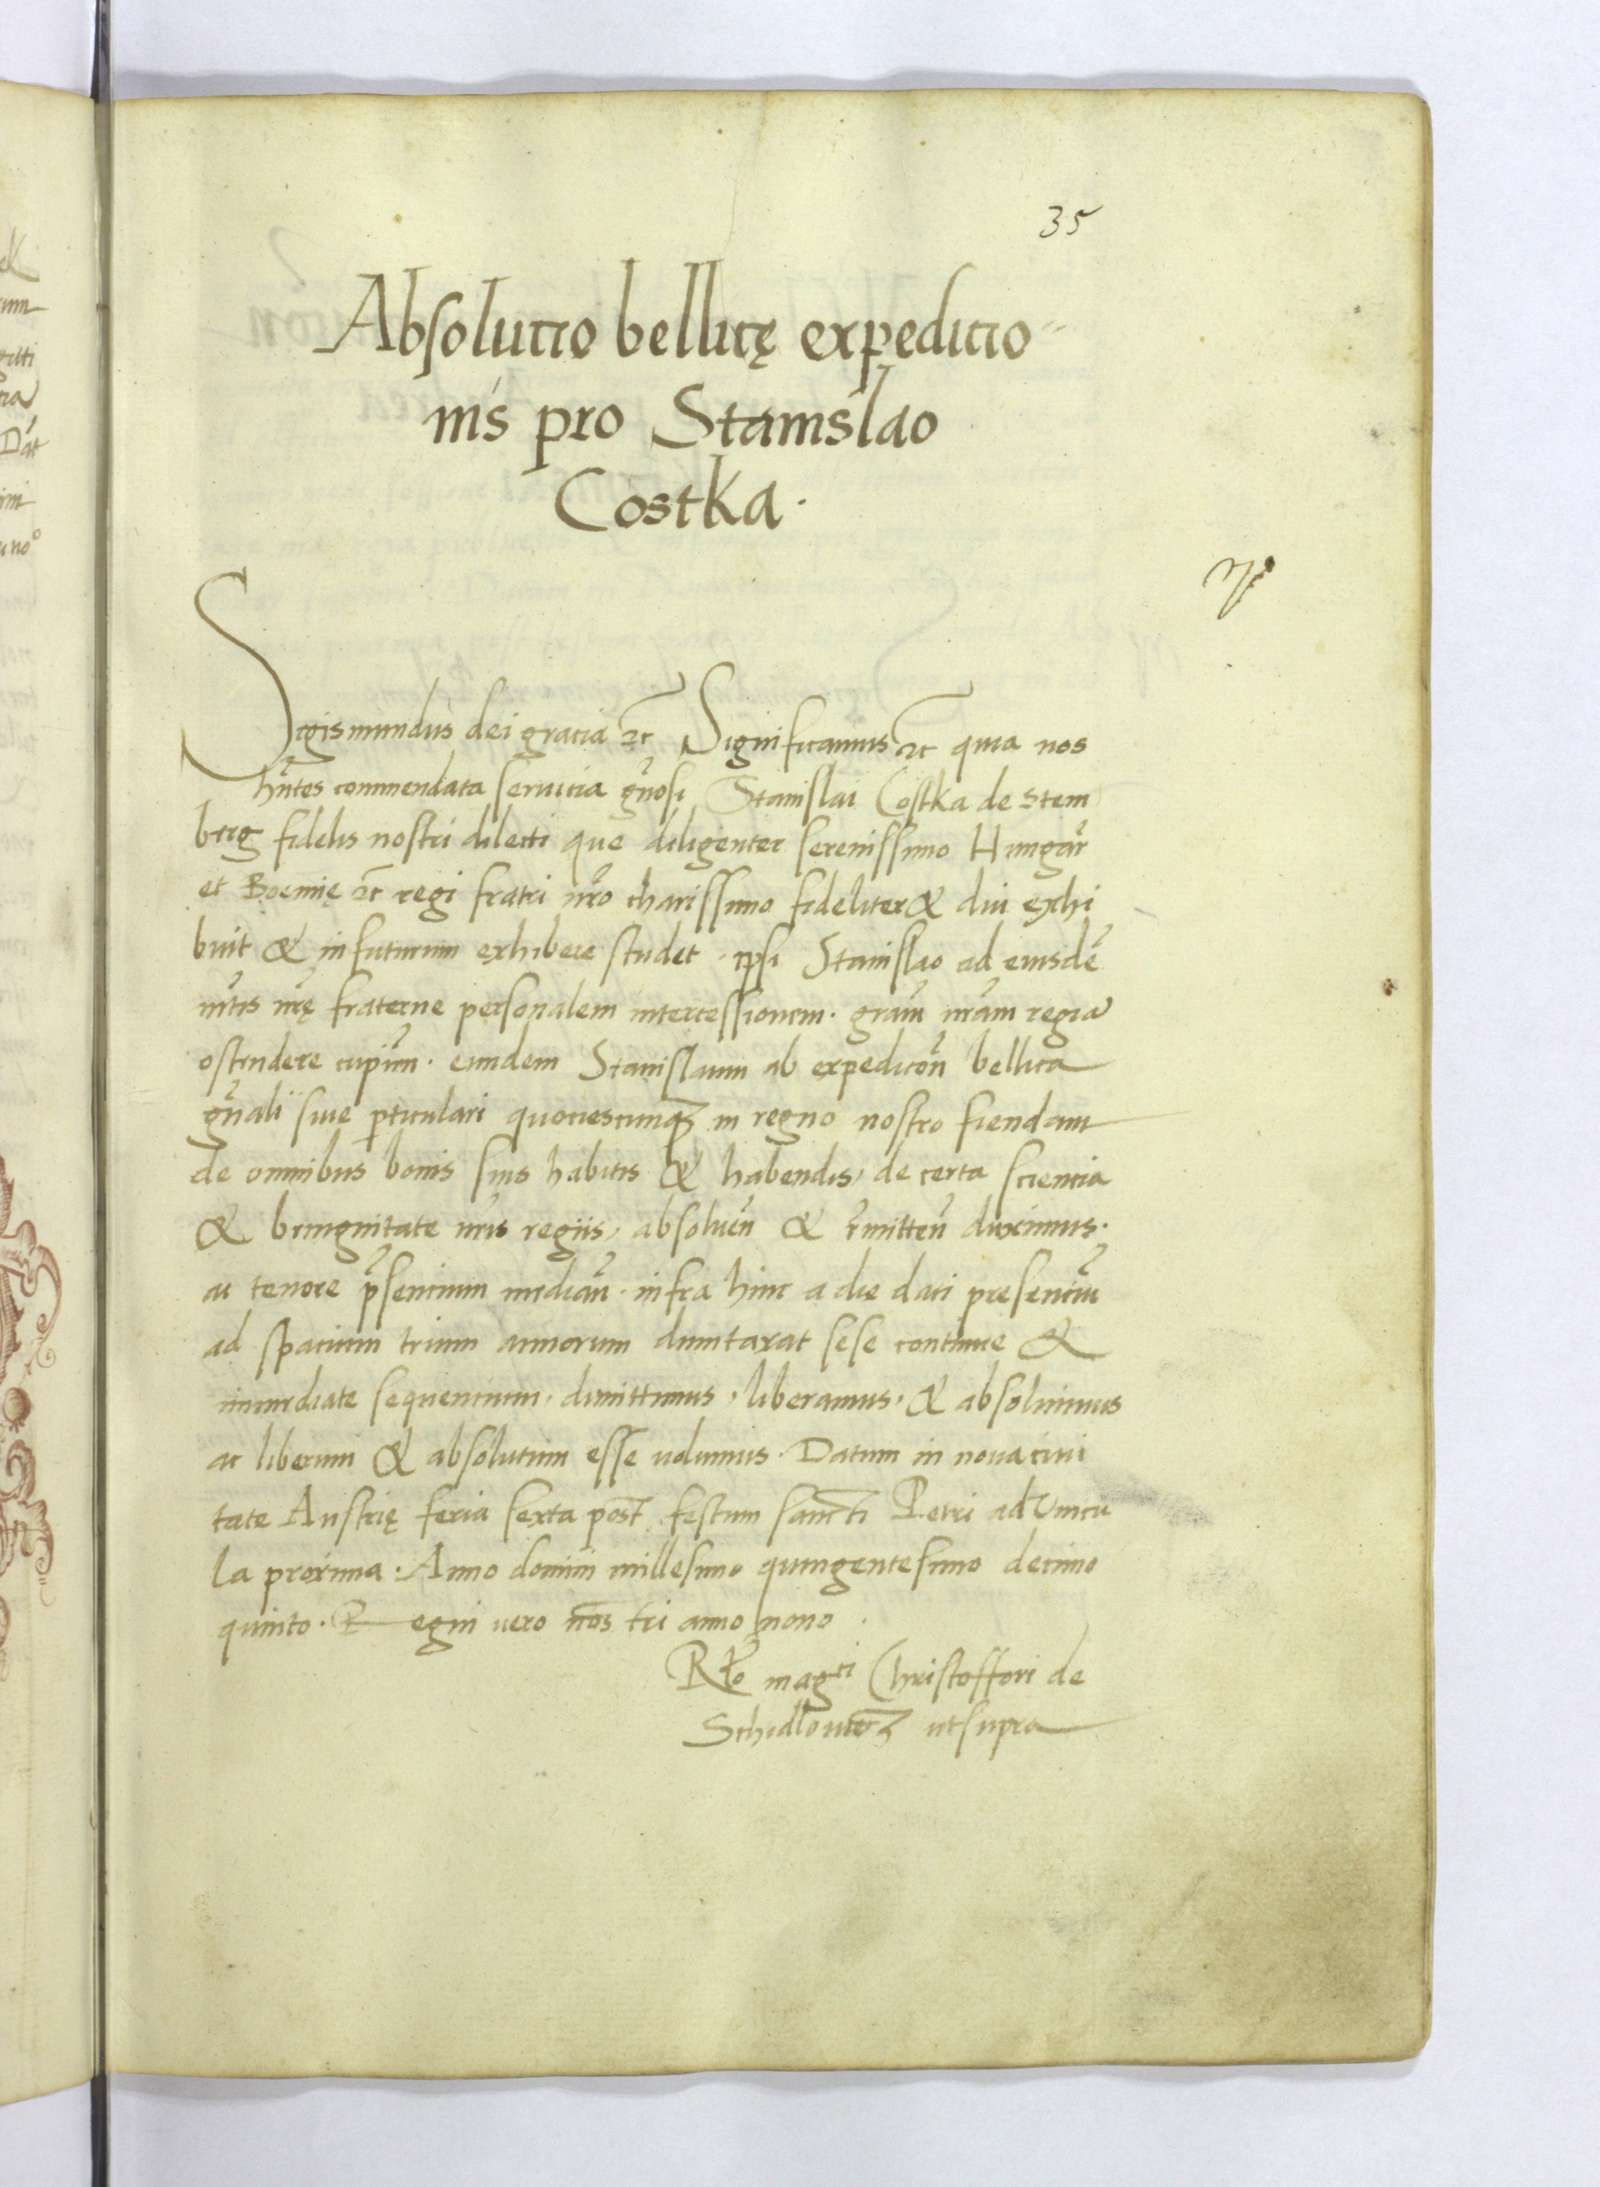 35
Absolutio bellicę expeditio
nis pro Stanislao
Costka.
Sigismundus dei gracia etc Significamus etc quia nos
hñtes commendata seruicia gñosi Stanislai Costka de Stem
berg fidelis nostri dilecti que diligenter serenissimo Hungar̃
et Boemię etc regi fratri nr̃o charissimo fideliter & diu exhi
buit & in futurum exhibere studet. ipsi Stanislao ad eiusdẽ
mtis nrę fraterne personalem intercessionem. gram̃ nrãm regia
ostendere cupiẽn. eundem Stanislaum ab expedicõn bellica
gñali siue pticulari quociescunq in regno nostro fiendam
de omnibus bonis suis habitis & habendis, de certa sciencia
& benignitate nr̃is regiis, absoluen̄ & r̃mitten̄ duximus.
ac tenore p̃sencium mediañ. infra hinc a die dati presenciũ
ad spacium trium annorum dumtaxat sese continue &
immediate sequencium. dimittimus. liberamus. & absoluimus
ac liberum & absolutum esse volumus. Datum in noua ciui
tate Austrię feria sexta post festum sancti Petri ad Vincu
la proxima. Anno domini millesimo quingentesimo decimo
quinto. Regni vero nostri anno nono.
Rło magci Christoffori de
Schidlouiecz ut supra